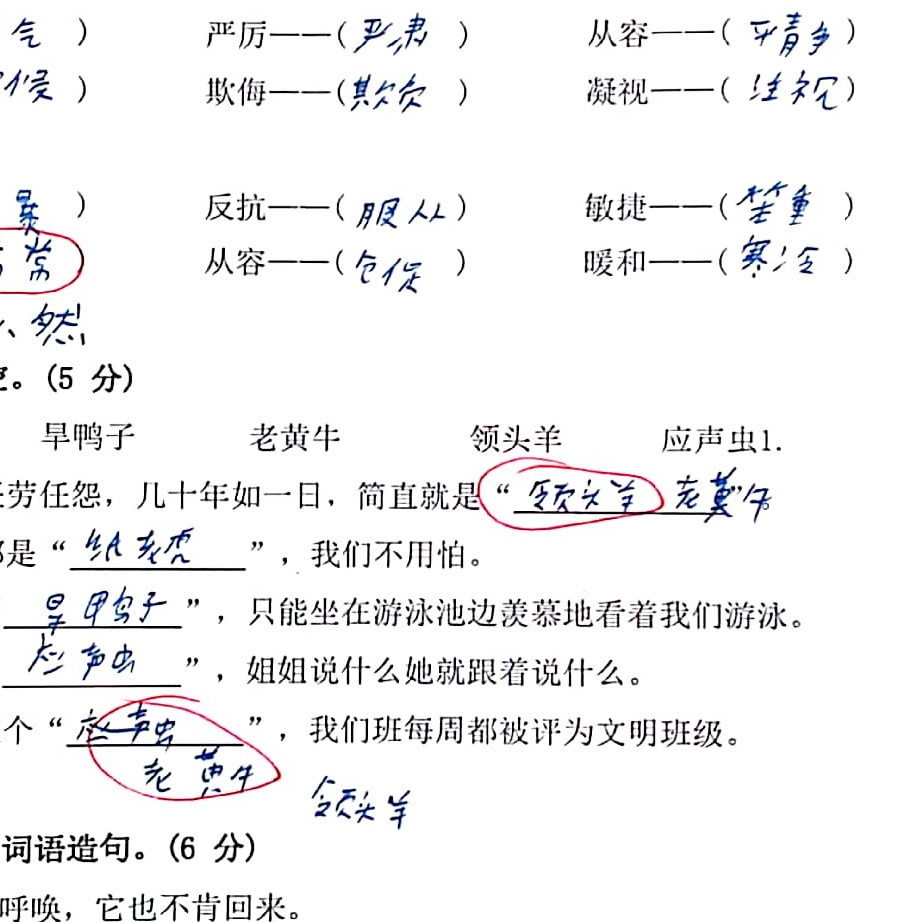 气 ） 严厉——（ 严肃 ） 从容——（ 平静 ）
候 ） 欺侮——（ 欺负 ） 凝视——（ 注视 ）
暴 ） 反抗——（ 服从 ） 敏捷——（ 笨重 ）
常 ） 从容——（ 仓促 ） 暖和——（ 寒冷 ）
、然
。(5 分)
旱鸭子 老黄牛 领头羊 应声虫1.
任劳任怨，几十年如一日，简直就是“ 领头羊 老黄牛”。
是“ 纸老虎 ”，我们不用怕。
旱鸭子 ”，只能坐在游泳池边羡慕地看着我们游泳。
应声虫 ”，姐姐说什么她就跟着说什么。
个“ 应声虫 ”，我们班每周都被评为文明班级。
老黄牛 领头羊
词语造句。(6 分)
呼唤，它也不肯回来。